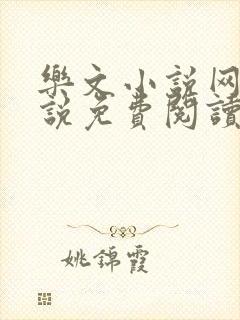 樂文小説网
説免費閱讀
姚錦霞